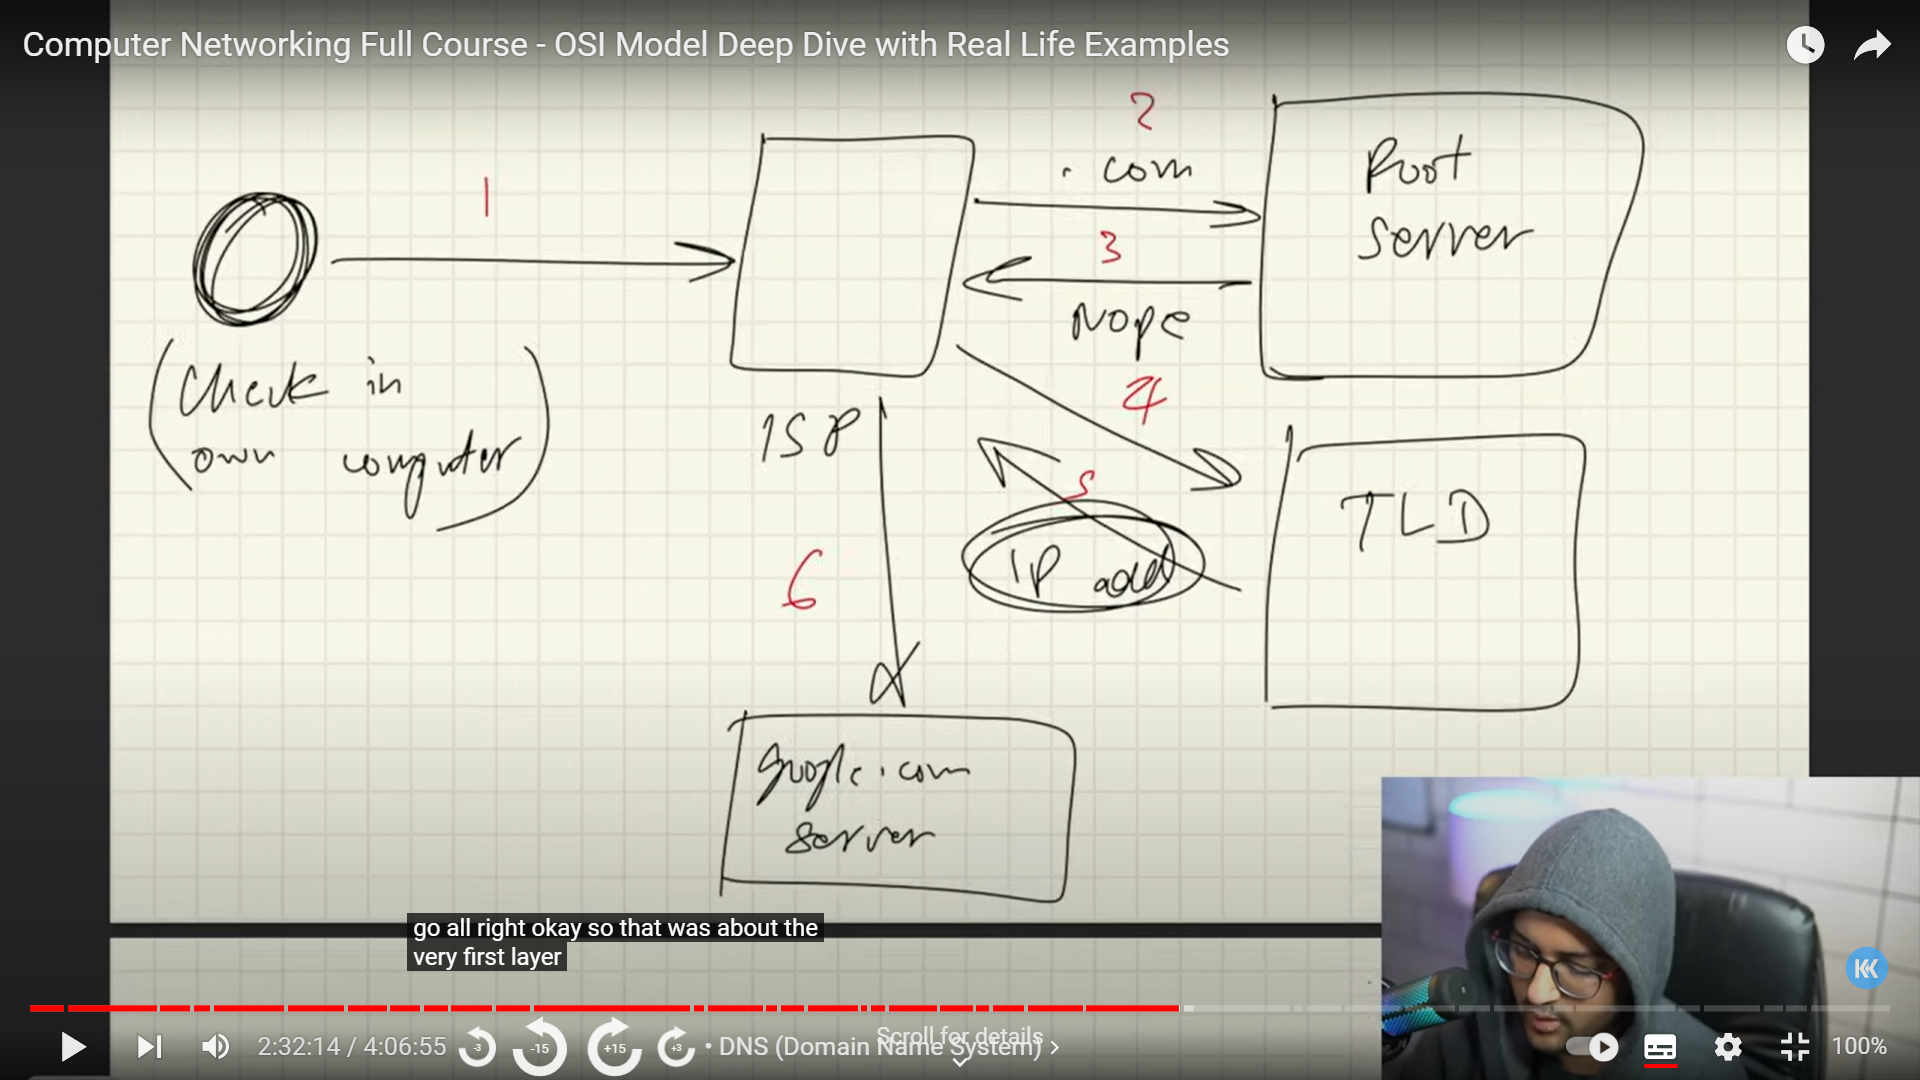 Computer Networking Full Course - OSI Model Deep Dive with Real Life Examples
1
2
. com
3
Nope
Root
server
(Check in
own computer)
ISP
4
5
IP add
TLD
6
google.com
server
go all right okay so that was about the
very first layer
2:32:14 / 4:06:55
-3
-15
+15
+3
• DNS (Domain Name System) >
Scroll for details
100%